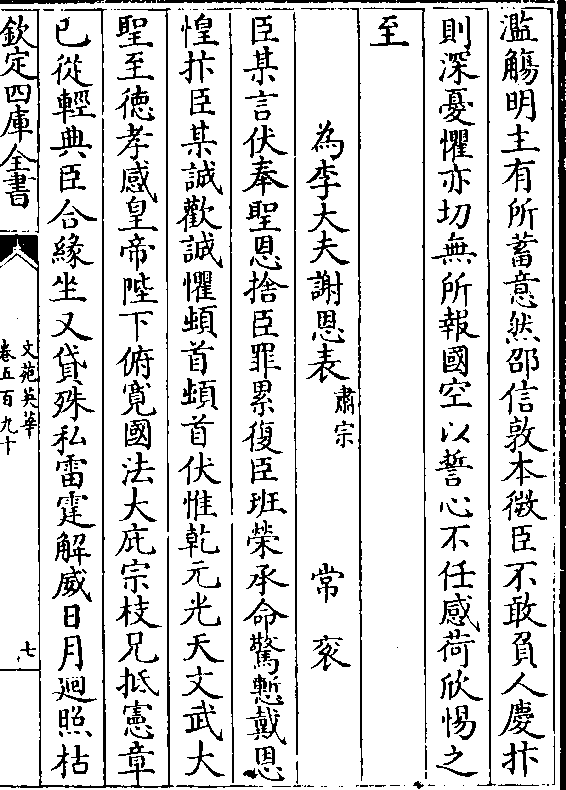 濫觴明主有所蓄意然邵信敦本微臣不敢負人慶抃
則深憂懼亦切無所報國空以誓心不任感荷欣惕之
至
為李大夫謝恩表肅宗 常衮
臣某言伏奉聖恩捨臣罪累復臣班榮承命驚慙戴恩
惶抃臣某誠歡誠懼頓首頓首伏惟乾元光天文武大
聖至德孝感皇帝陛下俯寬國法大庇宗枝兄抵憲章
已從輕典臣合緣坐又貸殊私雷霆解威日月迴照枯
欽定四庫全書
文苑英華
卷五百九十
七